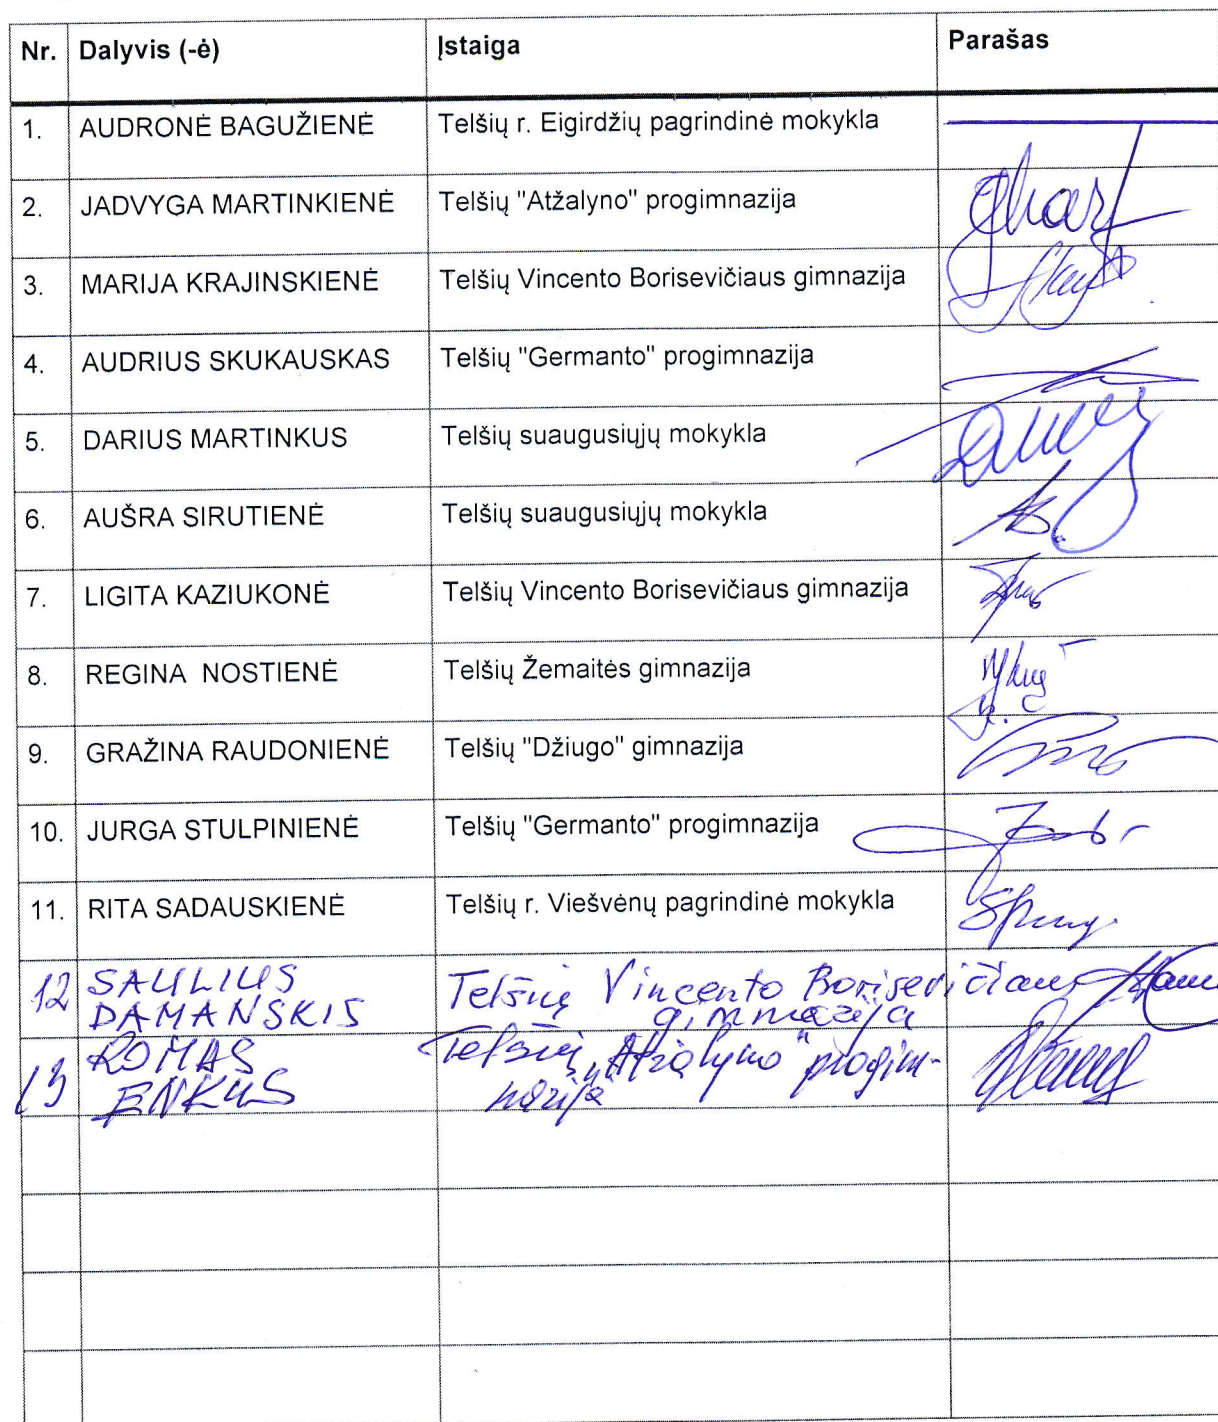 Nr. Dalyvis (-ė) Įstaiga Parašas
1. AUDRONĖ BAGUŽIENĖ Telšių r. Eigirdžių pagrindinė mokykla
2. JADVYGA MARTINKIENĖ Telšių "Atžalyno" progimnazija
3. MARIJA KRAJINSKIENĖ Telšių Vincento Borisevičiaus gimnazija
4. AUDRIUS SKUKAUSKAS Telšių "Germanto" progimnazija
5. DARIUS MARTINKUS Telšių suaugusiųjų mokykla
6. AUŠRA SIRUTIENĖ Telšių suaugusiųjų mokykla
7. LIGITA KAZIUKONĖ Telšių Vincento Borisevičiaus gimnazija
8. REGINA NOSTIENĖ Telšių Žemaitės gimnazija
9. GRAŽINA RAUDONIENĖ Telšių "Džiugo" gimnazija
10. JURGA STULPINIENĖ Telšių "Germanto" progimnazija
11. RITA SADAUSKIENĖ Telšių r. Viešvėnų pagrindinė mokykla
12 SAULIUS Telšių Vincento Borisevičiaus
DAMANSKIS gimnazija
13 ROMAS Telšių „Atžalyno" progim-
ENKUS nazija